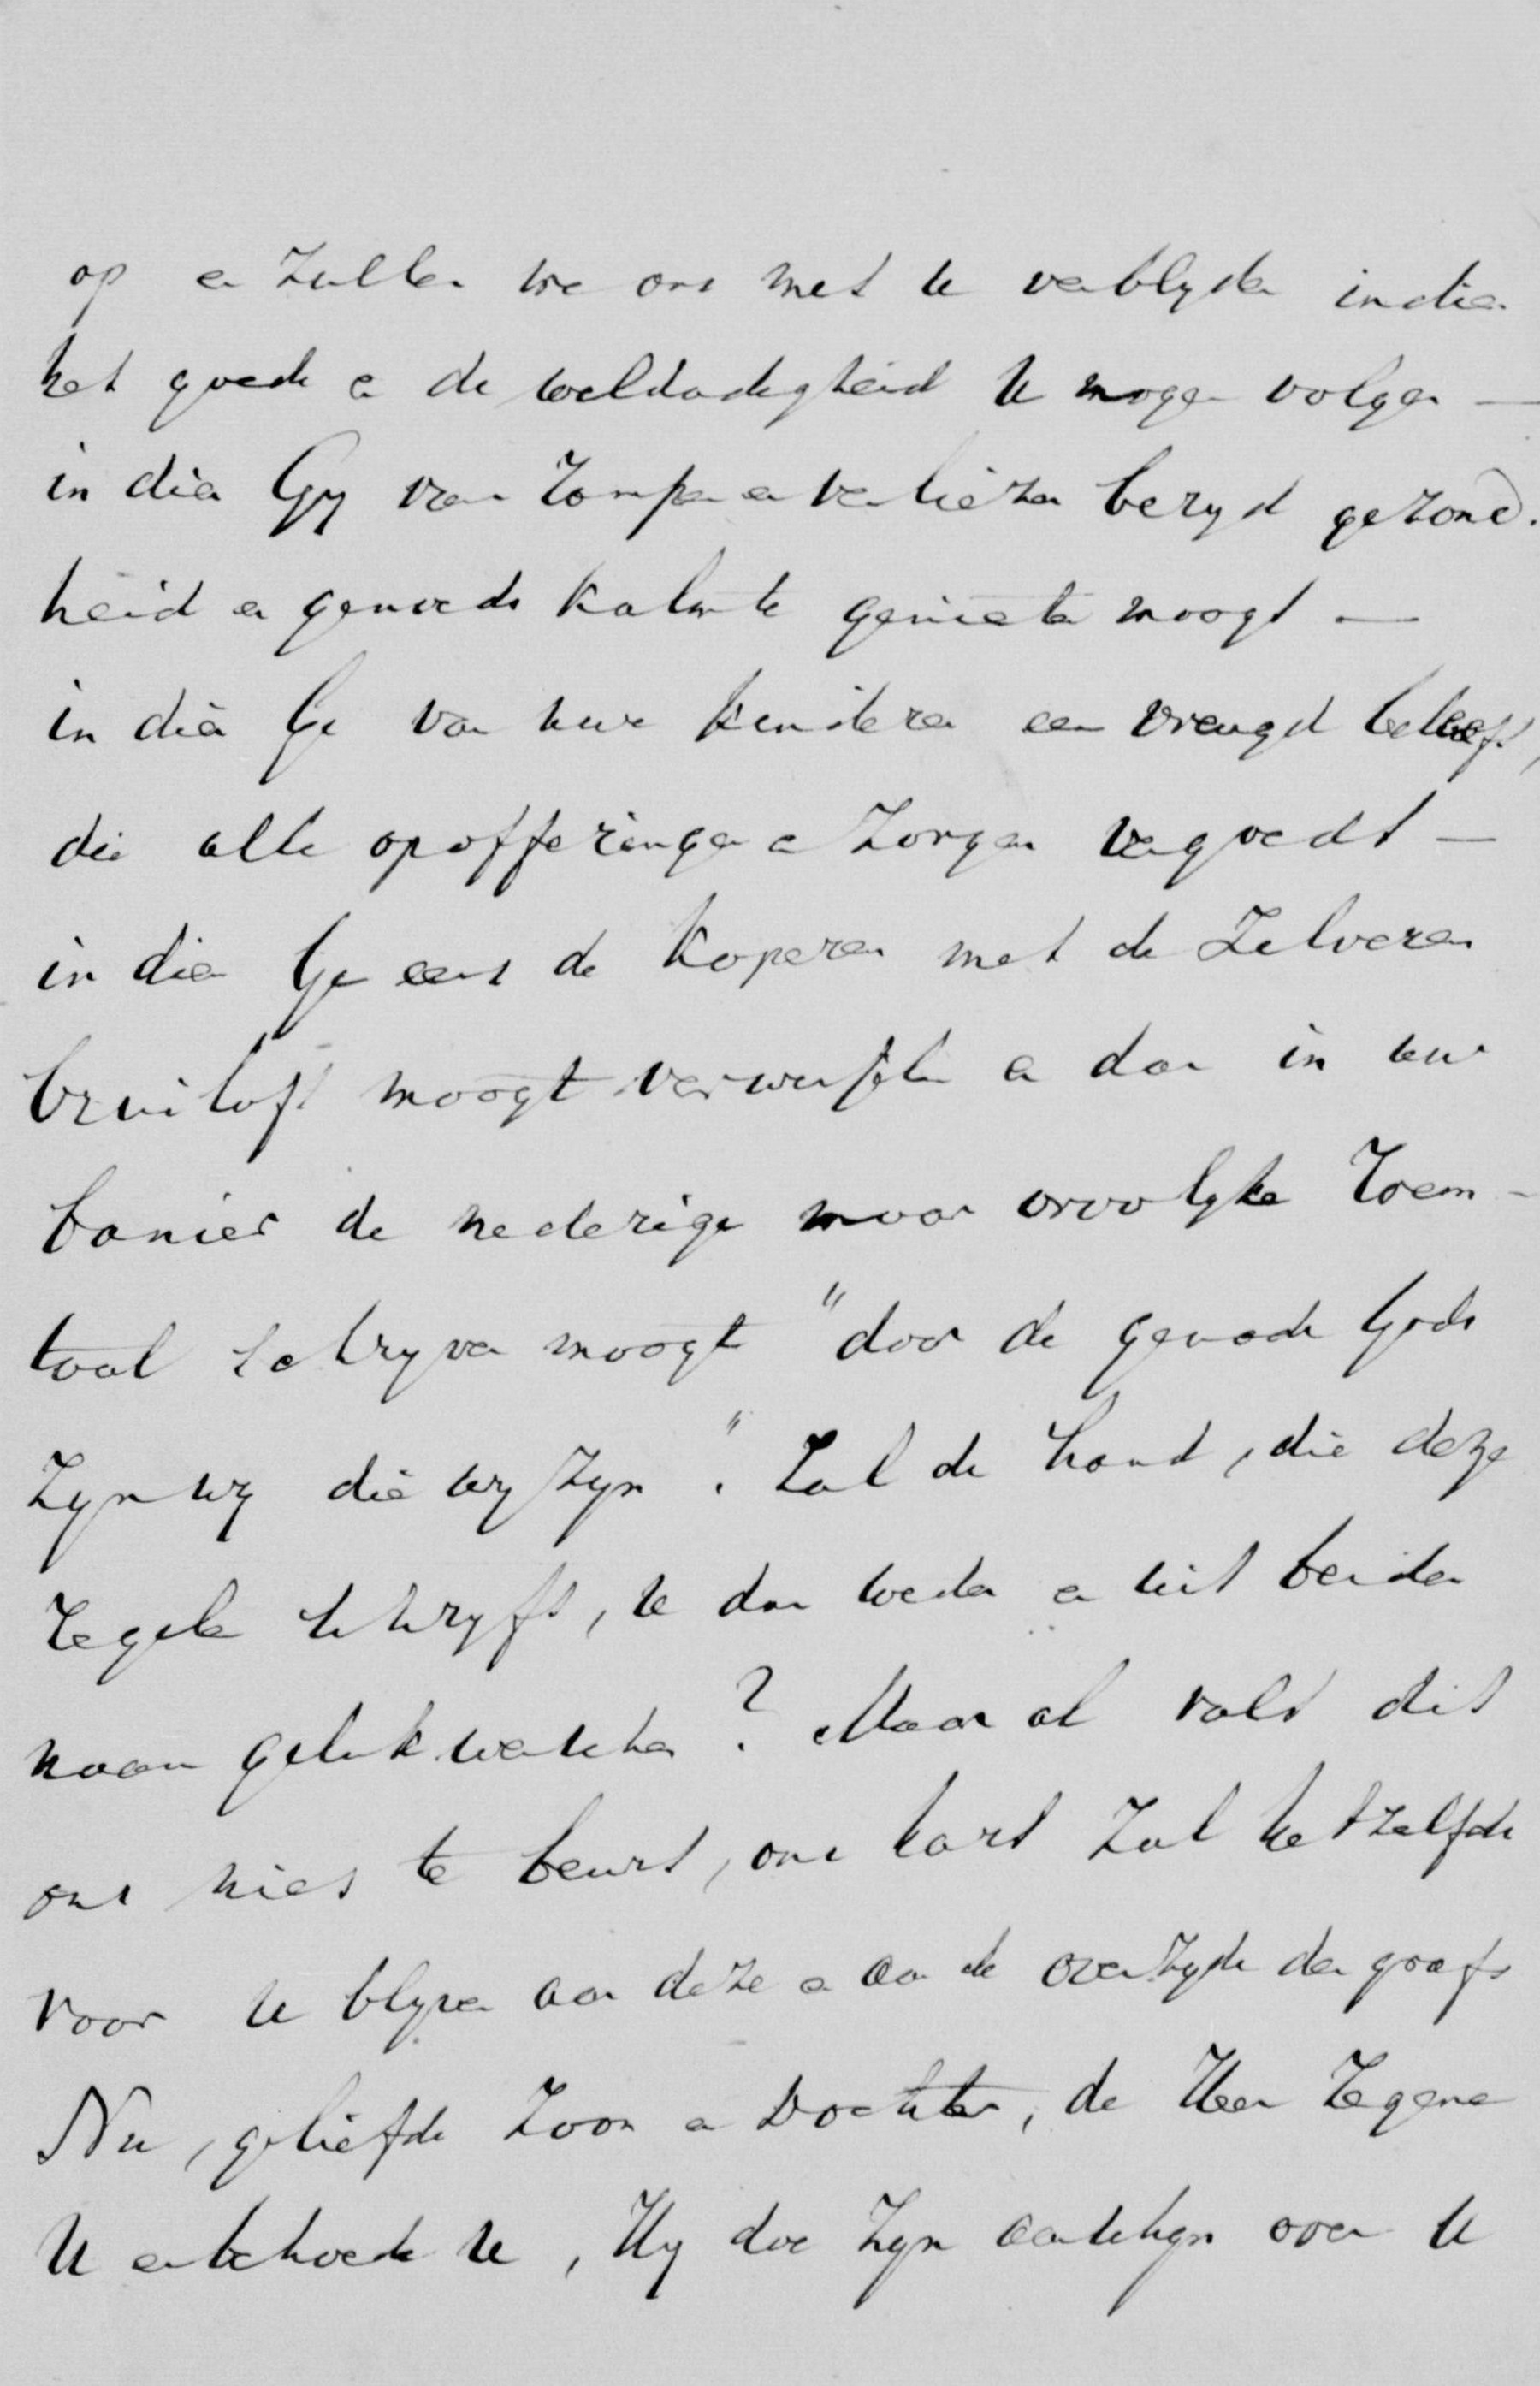 op en zullen we ons met U verblyden indien
het goede en de weldadigheid U mogen volgen —
in dien Gy van rampen en verliezen bevryd gezond-
heid en gemoeds kalmte genieten moogt —
in dien Ge van uwe kinderen een vreugd beleeft,
die alle opofferingen en zorgen vergoedt —
in dien Ge eens de Koperen met de Zilveren
bruiloft moogt verwisselen en dan in uw
banier de nederige maar vroolyke roem-
taal schryven moogt "door de genade Gods
zyn wy die wy zyn". Zal de hand, die deze
regelen schryft, U dan weder en uit beider
naam gelukwenschen? Maar al valt dit
ons niet te beurt, ons hart zal hetzelfde
voor U blyven aan deze en aan de overzyde des grafs
Nu, geliefde Zoon en Dochter, de Heer zegene
U en behoede U, Hy doe zyn aanschyn over U